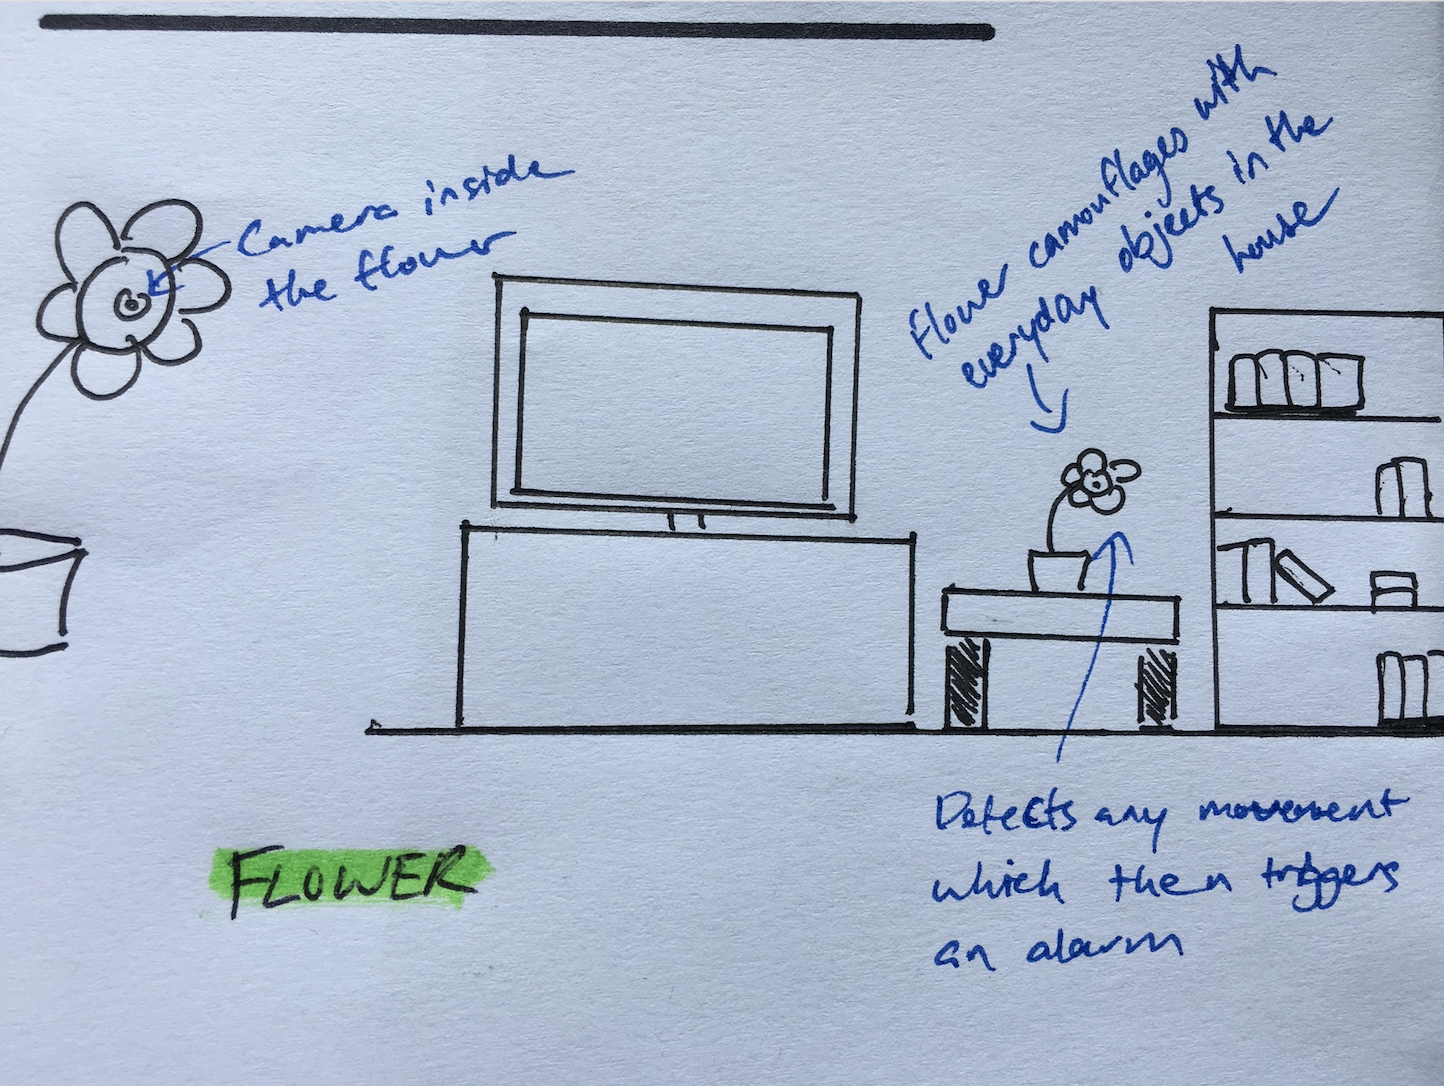 Camera inside
the flower
Flower camouflages with
everyday objects in the
house
Detects any movement
which then triggers
an alarm
FLOWER